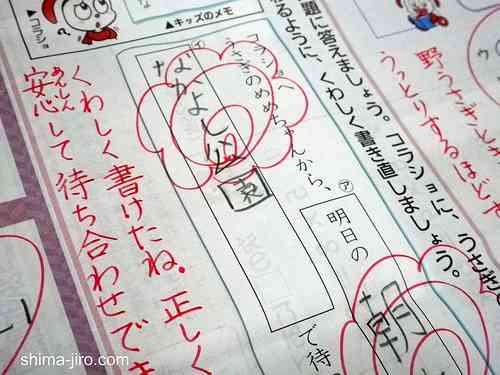 野うさぎ
うっとりするほど
題に答えましょう。コラショに、うさぎ
るように、くわしく書き直しましょう。
▲キッズのメモ
▲コラショ
コラショへ
うさぎのめめちゃんから、
㋐
明日の
朝
で待
㋑
なかよし公園
くわしく書けたね。正しく
安心して待ち合わせでき
あんしん
shima-jiro.com